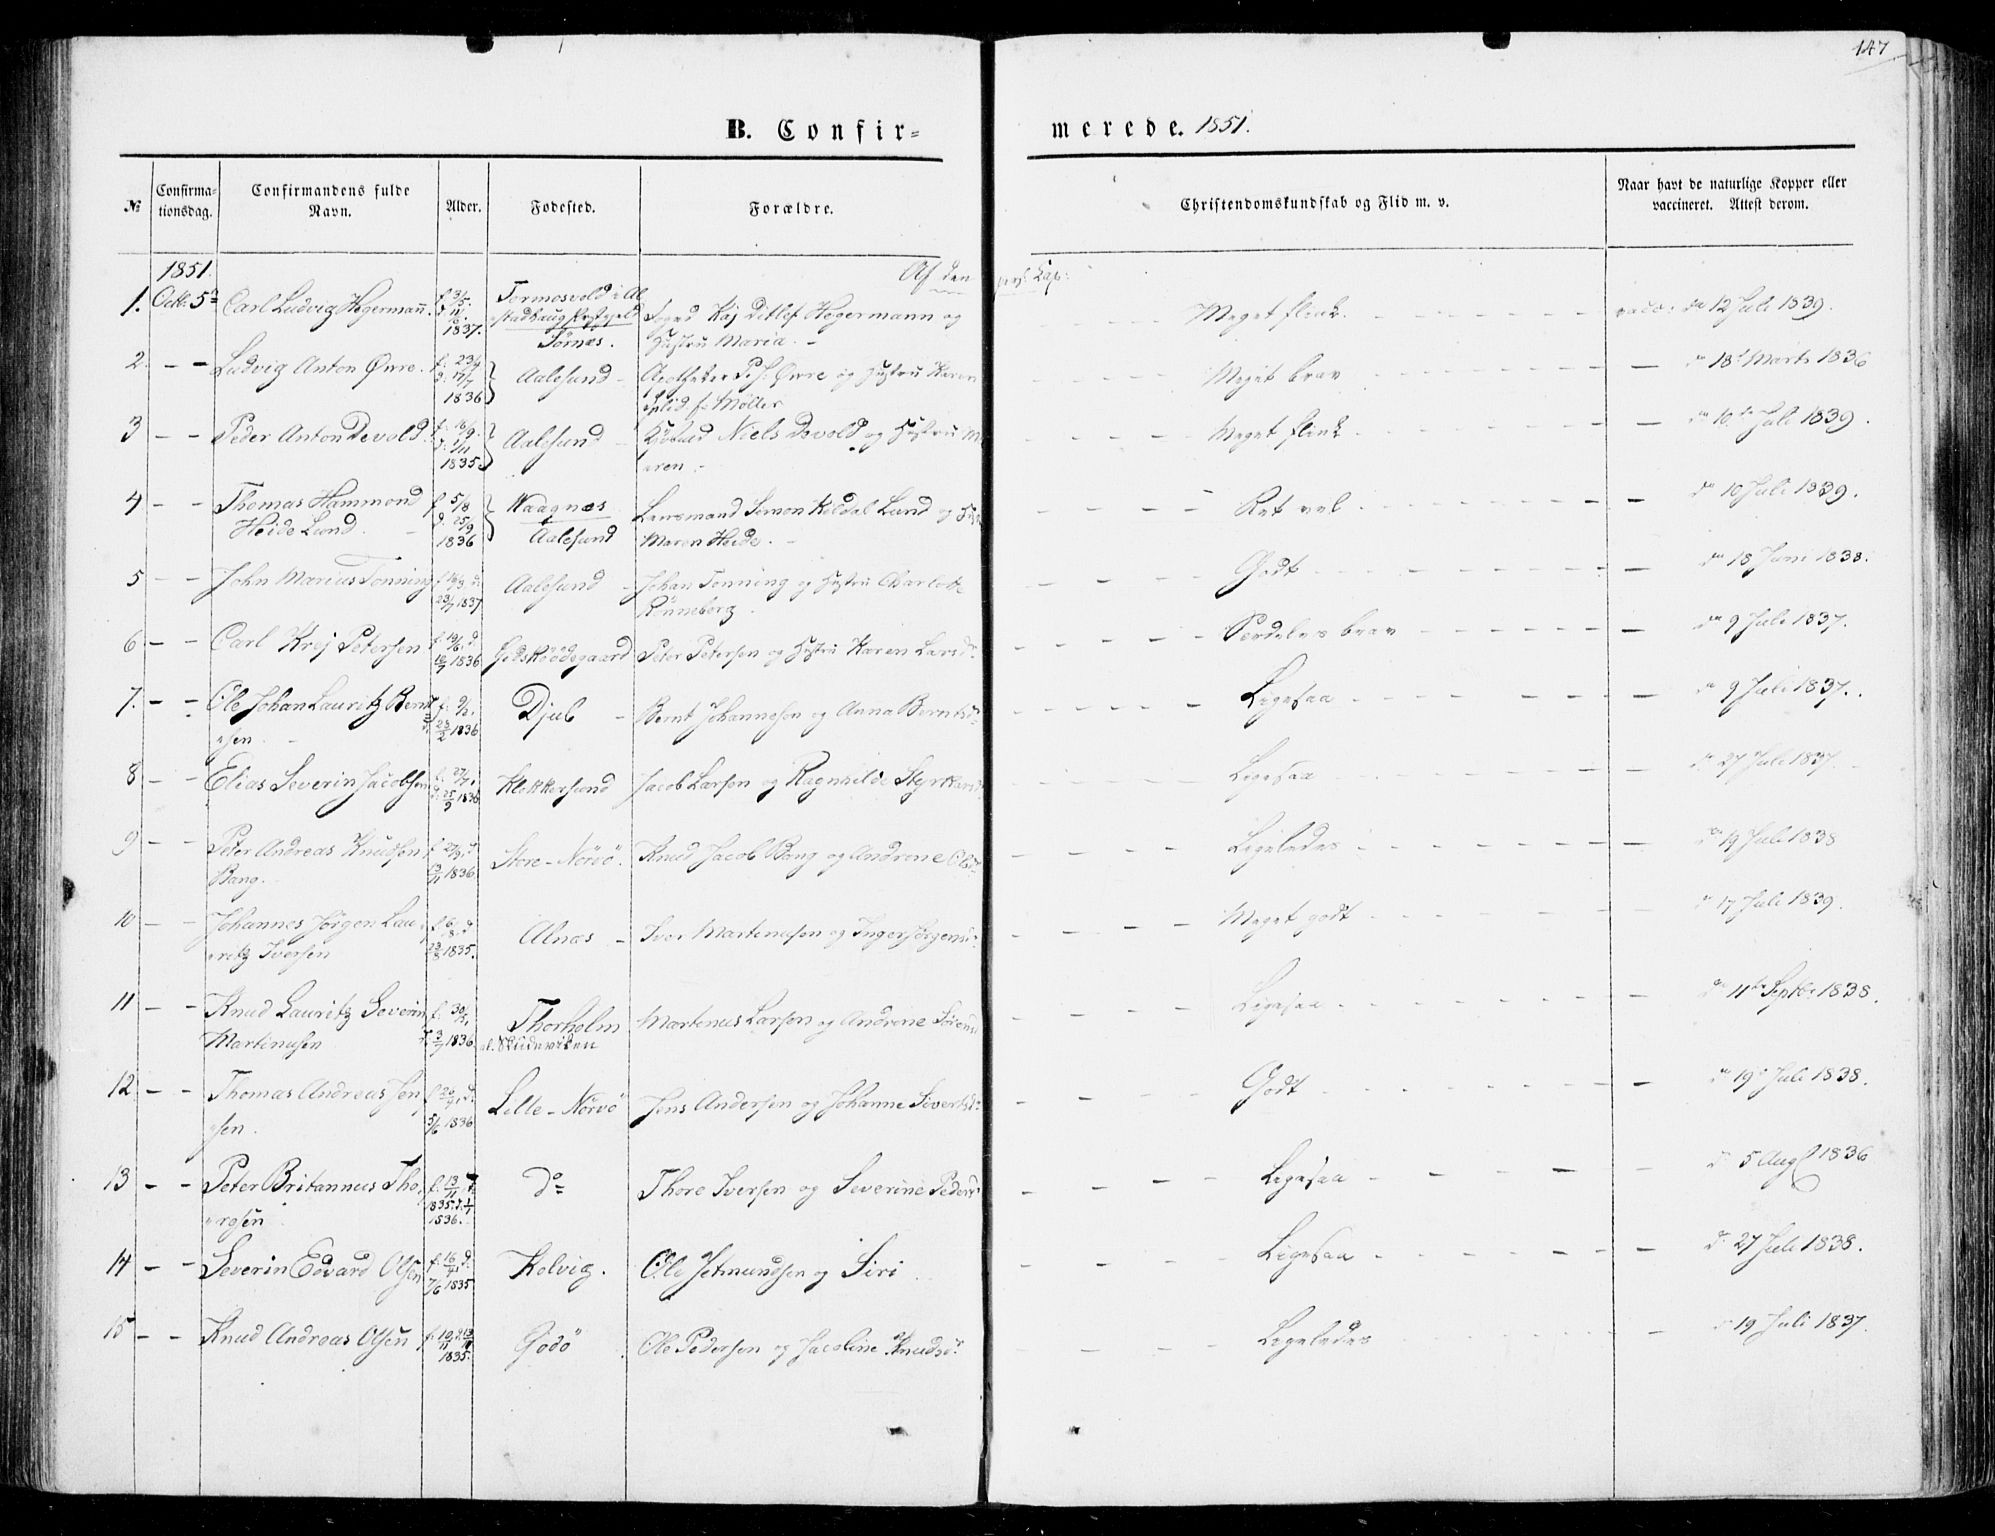 147
B. Confir=
merede. 1851.
№ Confirma-tionsdag. Confirmandens fulde Navn. Alder. Fødested. Forældre. Christendomskundskab og Flid m. v. Naar havt de naturlige Kopper eller vaccineret. Attest derom.
1851.
Af den pers. Cap:
1. Octb. 5te Carl Ludvig Hegermann. 1837. Kaj Ditlef Hegermann og Hustru Maria. Meget flink. vacc: dn 12 Juli 1839.
2. – – Ludvig Anton Øwre. f. 23/4 d. 17/7 1836 Aalesund Apotheker Øwre og Hustru Karen Split f. Møller Meget brav 18de Marts 1836
3 – – Peder Anton Devold. f. 18/9. d. 1/11 1835. Aalesund Niels Devold og Hustru Maren. Meget flink 10de Juli 1839.
4 – – Thomas Hammond Heide Lund. f. 5/8 d. 25/9 1836 Kaagnæs Aalesund Lensmand Simon Keldal Lund og Hust. Maren Heide. Ret vel 10 Juli 1839.
5 – – John Marius Tønning d. 23/7 1837 Aalesund Johan Tønning og Hustru Charlotte Rønneberg. Godt 18 Juni 1838.
6 – – Carl Krej Petersen f. 19/6. d. 10/7 1836 Gidskøødegaard Peter Petersen og Hustru Karen Larsd. Særdeles brav dn 9 Juli 1837.
7. – – Ole Johan Lauritz Berntsen. f. 9/2. d. 28/2 1836 Djub Bernt Johannesen og Anna Berntsd. Ligesaa 9 Juli 1837.
8 – – Elias Severin Jacobsen f. 27/7. d. 25/9 1836 Klokkersund Jacob Larsen og Ragnhild Styrkarsd. Ligesaa 27 Juli 1837.
9 – – Peter Andreas Knudsen Bang. f. 27/9. d. 13/11 1836 Store-Nørvø. Knud Jacob Bang og Andrene Olsd. Ligeledes 19 Juli 1838
10 – – Johannes Jørgen Lauritz Iversen f. 6/8. d. 23/8 1835. Alnæs Iver Martinusen og Inger Jørgensd. Meget godt 17 Juli 1839.
11 – – Knud Lauritz Severin Martinusen f. 30/5. d. 3/7 1836 Thorholm al. Skudeviken Martinus Larsen og Andrene Sørensd. Ligesaa 11te Septbr 1838.
12 – – Thomas Andreas Jensen. f. 26/4. d. 5/6 1836 Lille-Nørvø Jens Andersen og Johanne Sivertsd. Godt 19de Juli 1838.
13 – – Peter Britannus Thoresen f. 13/11 1835. d. 1/1 1836. Do Thore Iversen og Severine Pedersd. Ligesaa 5 Augt 1836
14 – – Severin Edvard Olsen f. 16/4 d. 7/6 1835 Kolvig. Ole Jetmundsen og Siri Ligesaa 27 Juli 1838.
15 – – Knud Andreas Olsen f. 10/11 1835. Godø Ole Pedersen og Jacoline Knudsd. Ligeledes 19 Juli 1837.